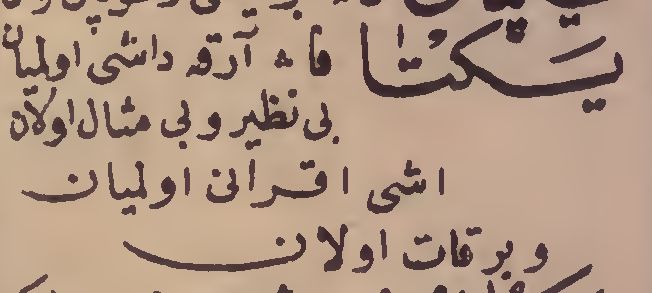 يَكْتا فا ﻫ آرقه داشی اولمیان
بی نظیر و بی مثال اولان
اشی اقرانی اولمیان
و بر قات اولان